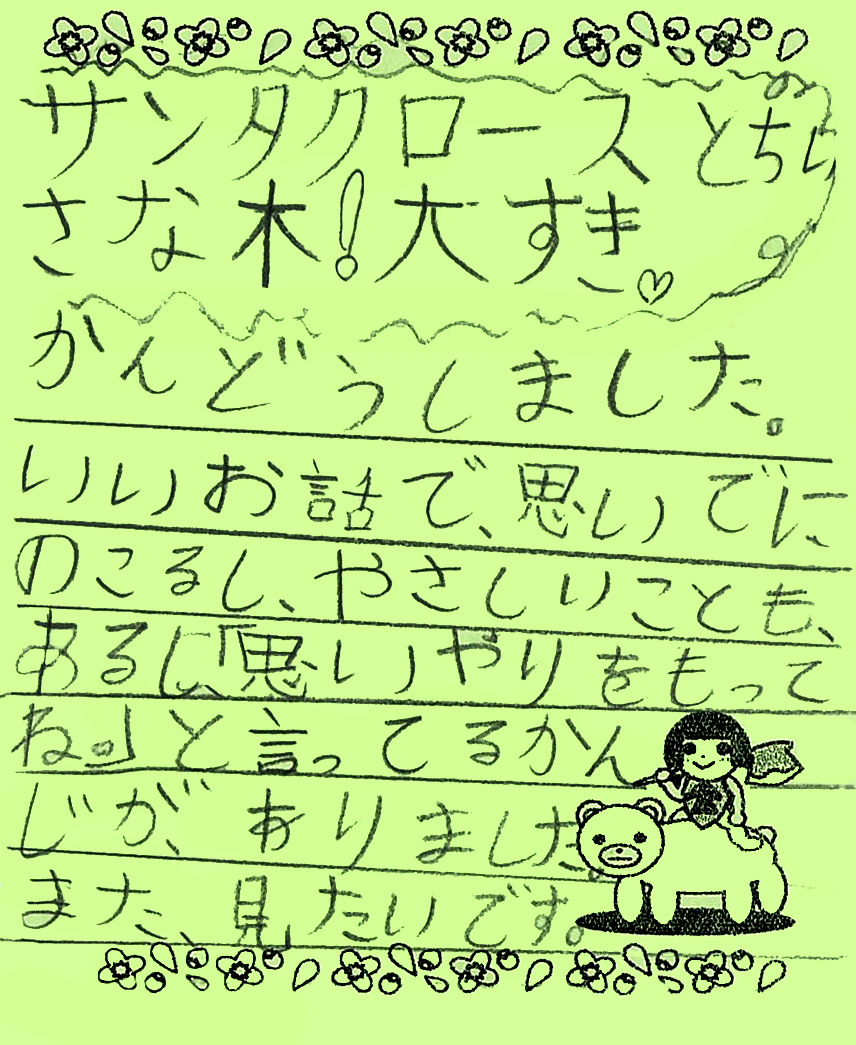 サンタクロースとちい
さな木!大すき♡
かんどうしました。
いいお話で、思いでに
のこるし、やさしいことも、
あるし「思いやりをもって
ね。」と言ってるかん
じが、ありました。
また、見たいです。